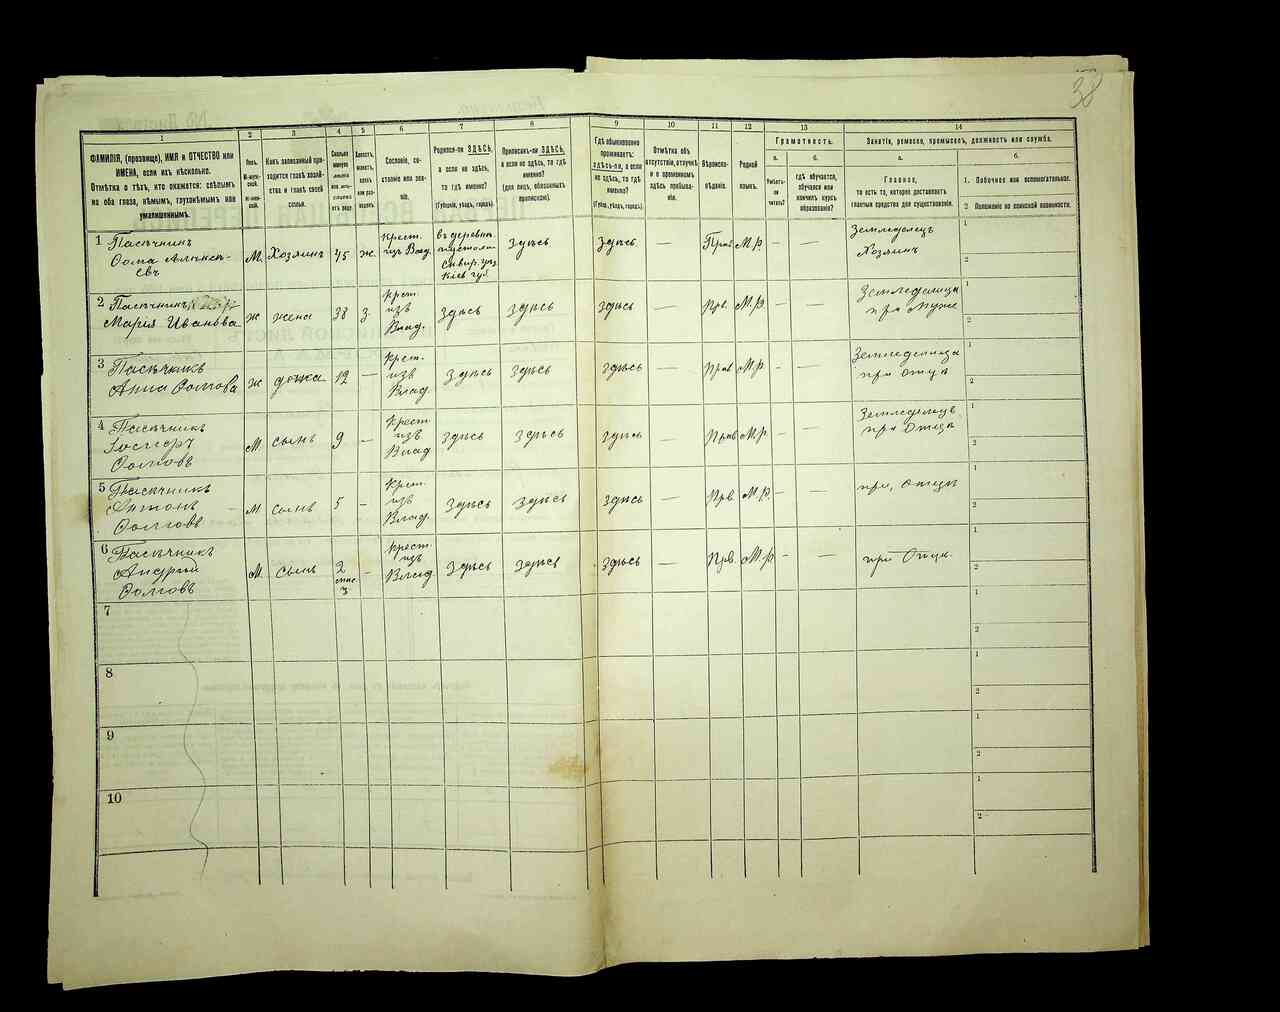 38
1 2 3 4 5 6 7 8 9 10 11 12 13 14
ФАМИЛІЯ, (прозвище), ИМЯ и ОТЧЕСТВО или
ИМЕНА, если ихъ нѣсколько.
Отмѣтка о тѣхъ, кто окажется: слѣпымъ
на оба глаза, нѣмымъ, глухонѣмымъ или
умалишеннымъ.
Полъ.
М-муж-
ской.
Ж-жен-
скій.
Какъ записанный при-
ходится главѣ хозяй-
ства и главѣ своей
семьи.
Сколько
минуло
лѣтъ
Холостъ,
женатъ,
вдовъ
или раз-
веденъ.
Сословіе, со-
стояніе или зва-
ніе.
Родился-ли ЗДѢСЬ,
а если не здѣсь,
то гдѣ именно?
(Губернія, уѣздъ, городъ).
Приписанъ-ли ЗДѢСЬ,
а если не здѣсь, то гдѣ
именно?
(для лицъ, обязанныхъ
припиской).
Гдѣ обыкновенно
проживаетъ:
здѣсь-ли, а если
не здѣсь, то гдѣ
именно?
(Губ., уѣздъ, городъ).
Отмѣтка объ
отсутствіи, отлучкѣ
и о временномъ
здѣсь пребыва-
ніи.
Вѣроиспо-
вѣданіе.
Родной
языкъ.
Грамотность.
а.
Умѣетъ-
ли
читать?
б.
гдѣ обучается,
обучался или
кончилъ курсъ
образованія?
Занятіе, ремесло, промыселъ, должность или служба.
а.
Главное,
то есть то, которое доставляетъ
главныя средства для существованія.
б.
1. Побочное или вспомогательное.
2. Положеніе по воинской повинности.
1 Пасѣчникъ
Ѳома Алексѣ-
евъ
М. Хозяинъ 45 ж.
Крест.
изъ Влад.
въ деревнѣ
Сквир. уѣз
Кіев. губ.
здѣсь здѣсь — Прав М.р. — —
Земледѣлецъ
Хозяинъ
1
2
2 Пасѣчникъ
Марія Иванова
ж жена 38 з.
Крест.
изъ
Влад.
здѣсь здѣсь здѣсь — Прв. М.р. — —
Земледѣлица
при мужѣ
1
2
3 Пасѣчникъ
Анна Ѳомова
ж дочка 12 —
Крест.
изъ
Влад.
здѣсь здѣсь здѣсь — Прав М.р. — —
Земледѣлица
при отцѣ
1
2
4 Пасѣчникъ
Ѳомовъ
М. сынъ 9 —
Крест
изъ
Влад
здѣсь здѣсь здѣсь — Прав М.р. — —
Земледѣлецъ
при Отцѣ
1
2
5 Пасѣчникъ
Антонъ
Ѳомовъ
м сынъ 5 —
Крест.
изъ
Влад.
здѣсь здѣсь здѣсь — Прв. М.р. —
при, Отцѣ
1
2
6 Пасѣчникъ
Андрѣй
Ѳомовъ
М. сынъ 2
мѣс.
3
—
Крест.
изъ
Влад.
здѣсь здѣсь здѣсь — Прв. М.р. — —
при Отцѣ.
1
2
7
1
2
8
1
2
9
1
2
10
1
2